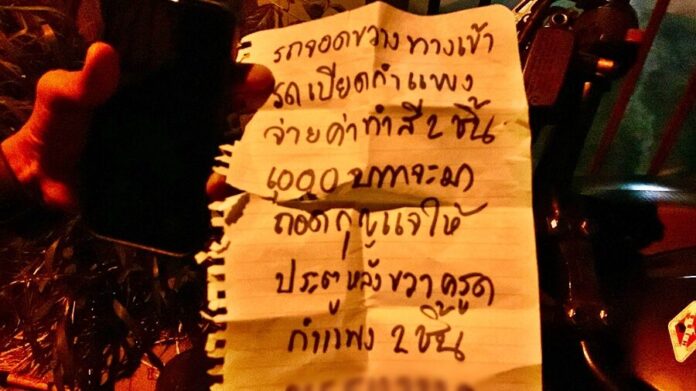 รถจอดขวางทางเข้า
รถเบียดกำแพง
จ่ายค่าทำสี 2 ชิ้น
บาทจะมา
ถอดกุญแจให้
ประตูหลังขวาครูด
กำแพง 2 ชิ้น